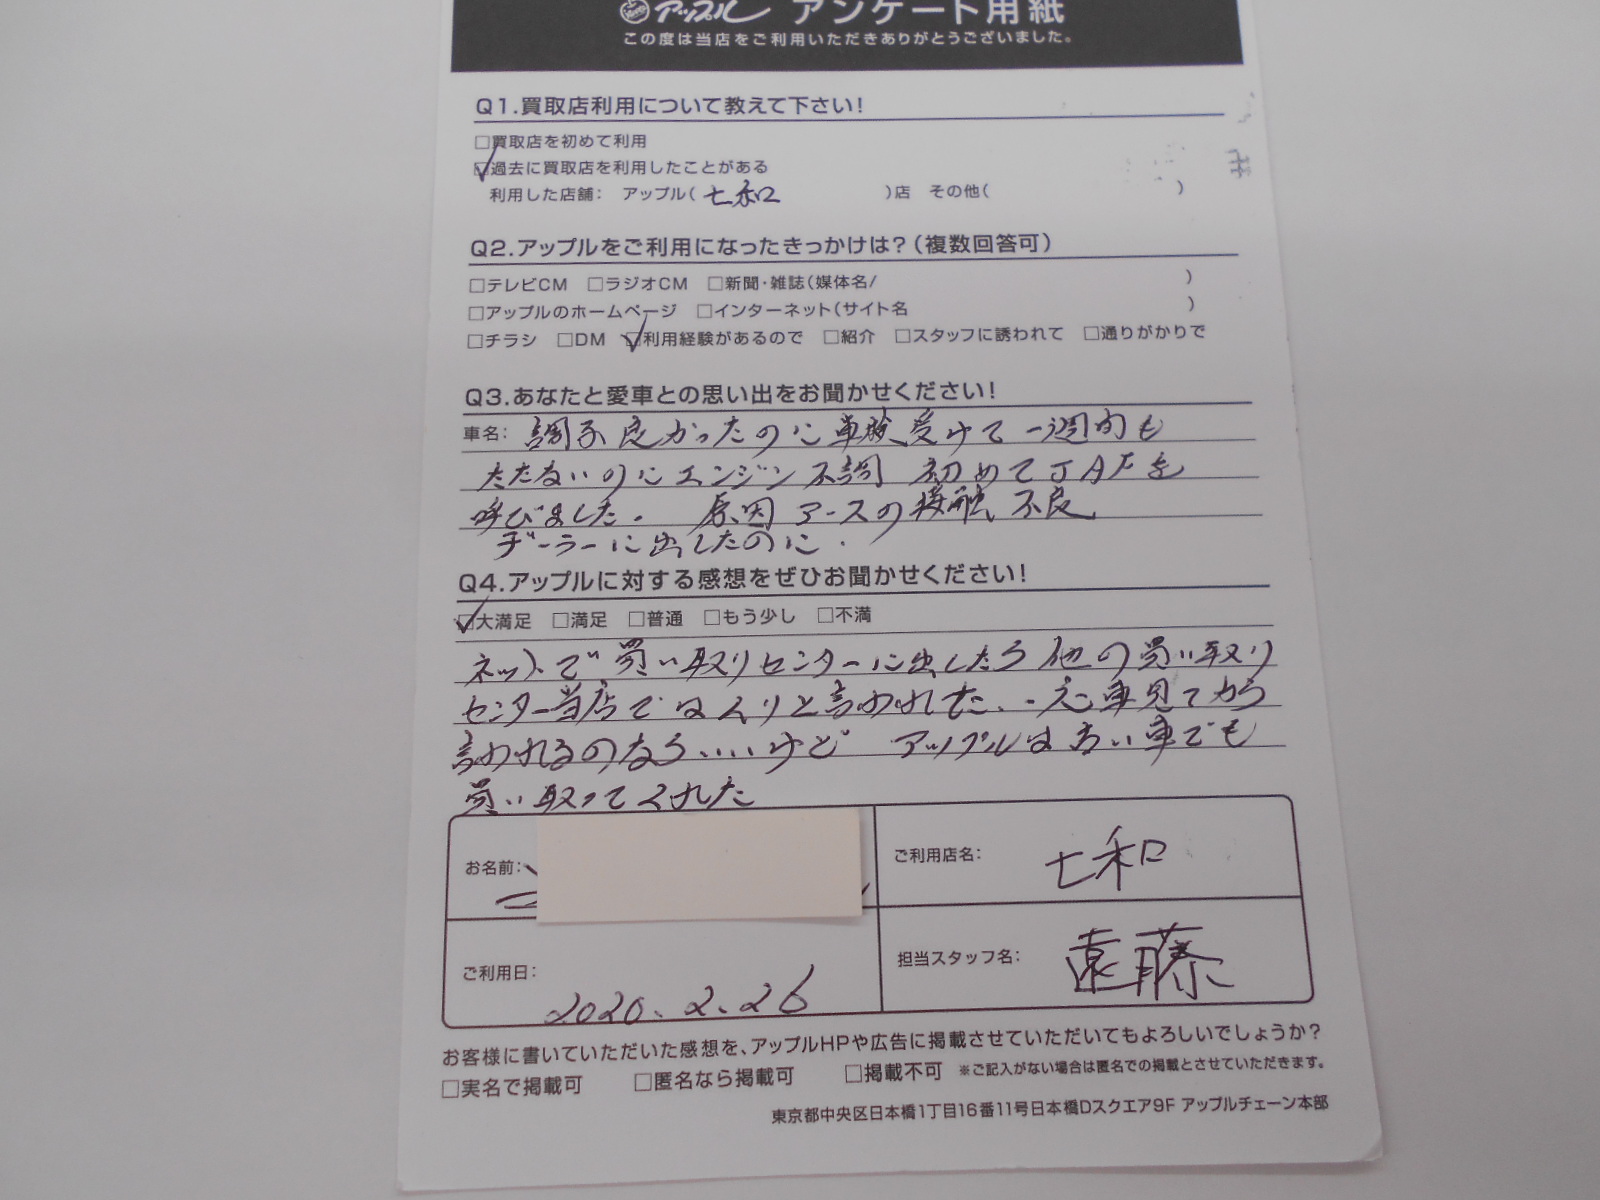 アップル アンケート用紙
この度は当店をご利用いただきありがとうございました。
Q1.買取店利用について教えて下さい!
□買取店を初めて利用
☑過去に買取店を利用したことがある
利用した店舗: アップル(七和 )店 その他( )
Q2.アップルをご利用になったきっかけは?(複数回答可)
□テレビCM □ラジオCM □新聞・雑誌(媒体名/ )
□アップルのホームページ □インターネット(サイト名 )
□チラシ □DM ☑利用経験があるので □紹介 □スタッフに誘われて □通りがかりで
Q3.あなたと愛車との思い出をお聞かせください!
車名: 調子良かったのに車検受けて一週間も
たたないのにエンジン不調 初めてJAFを
呼びました. 原因アースの接触不良
ヂーラーに出したのに.
Q4.アップルに対する感想をぜひお聞かせください!
☑大満足 □満足 □普通 □もう少し □不満
ネットで買い取りセンターに出したら他の買い取り
センター当店では と言われた.. 車見てから
言われるのなら、いいけど アップルは古い車でも
買い取ってくれた
お名前:
ご利用店名: 七和
ご利用日: 2020.2.26
担当スタッフ名: 遠藤
お客様に書いていただいた感想を、アップルHPや広告に掲載させていただいてもよろしいでしょうか?
□実名で掲載可 □匿名なら掲載可 □掲載不可 ※ご記入がない場合は匿名での掲載とさせていただきます。
東京都中央区日本橋1丁目16番11号日本橋Dスクエア9F アップルチェーン本部